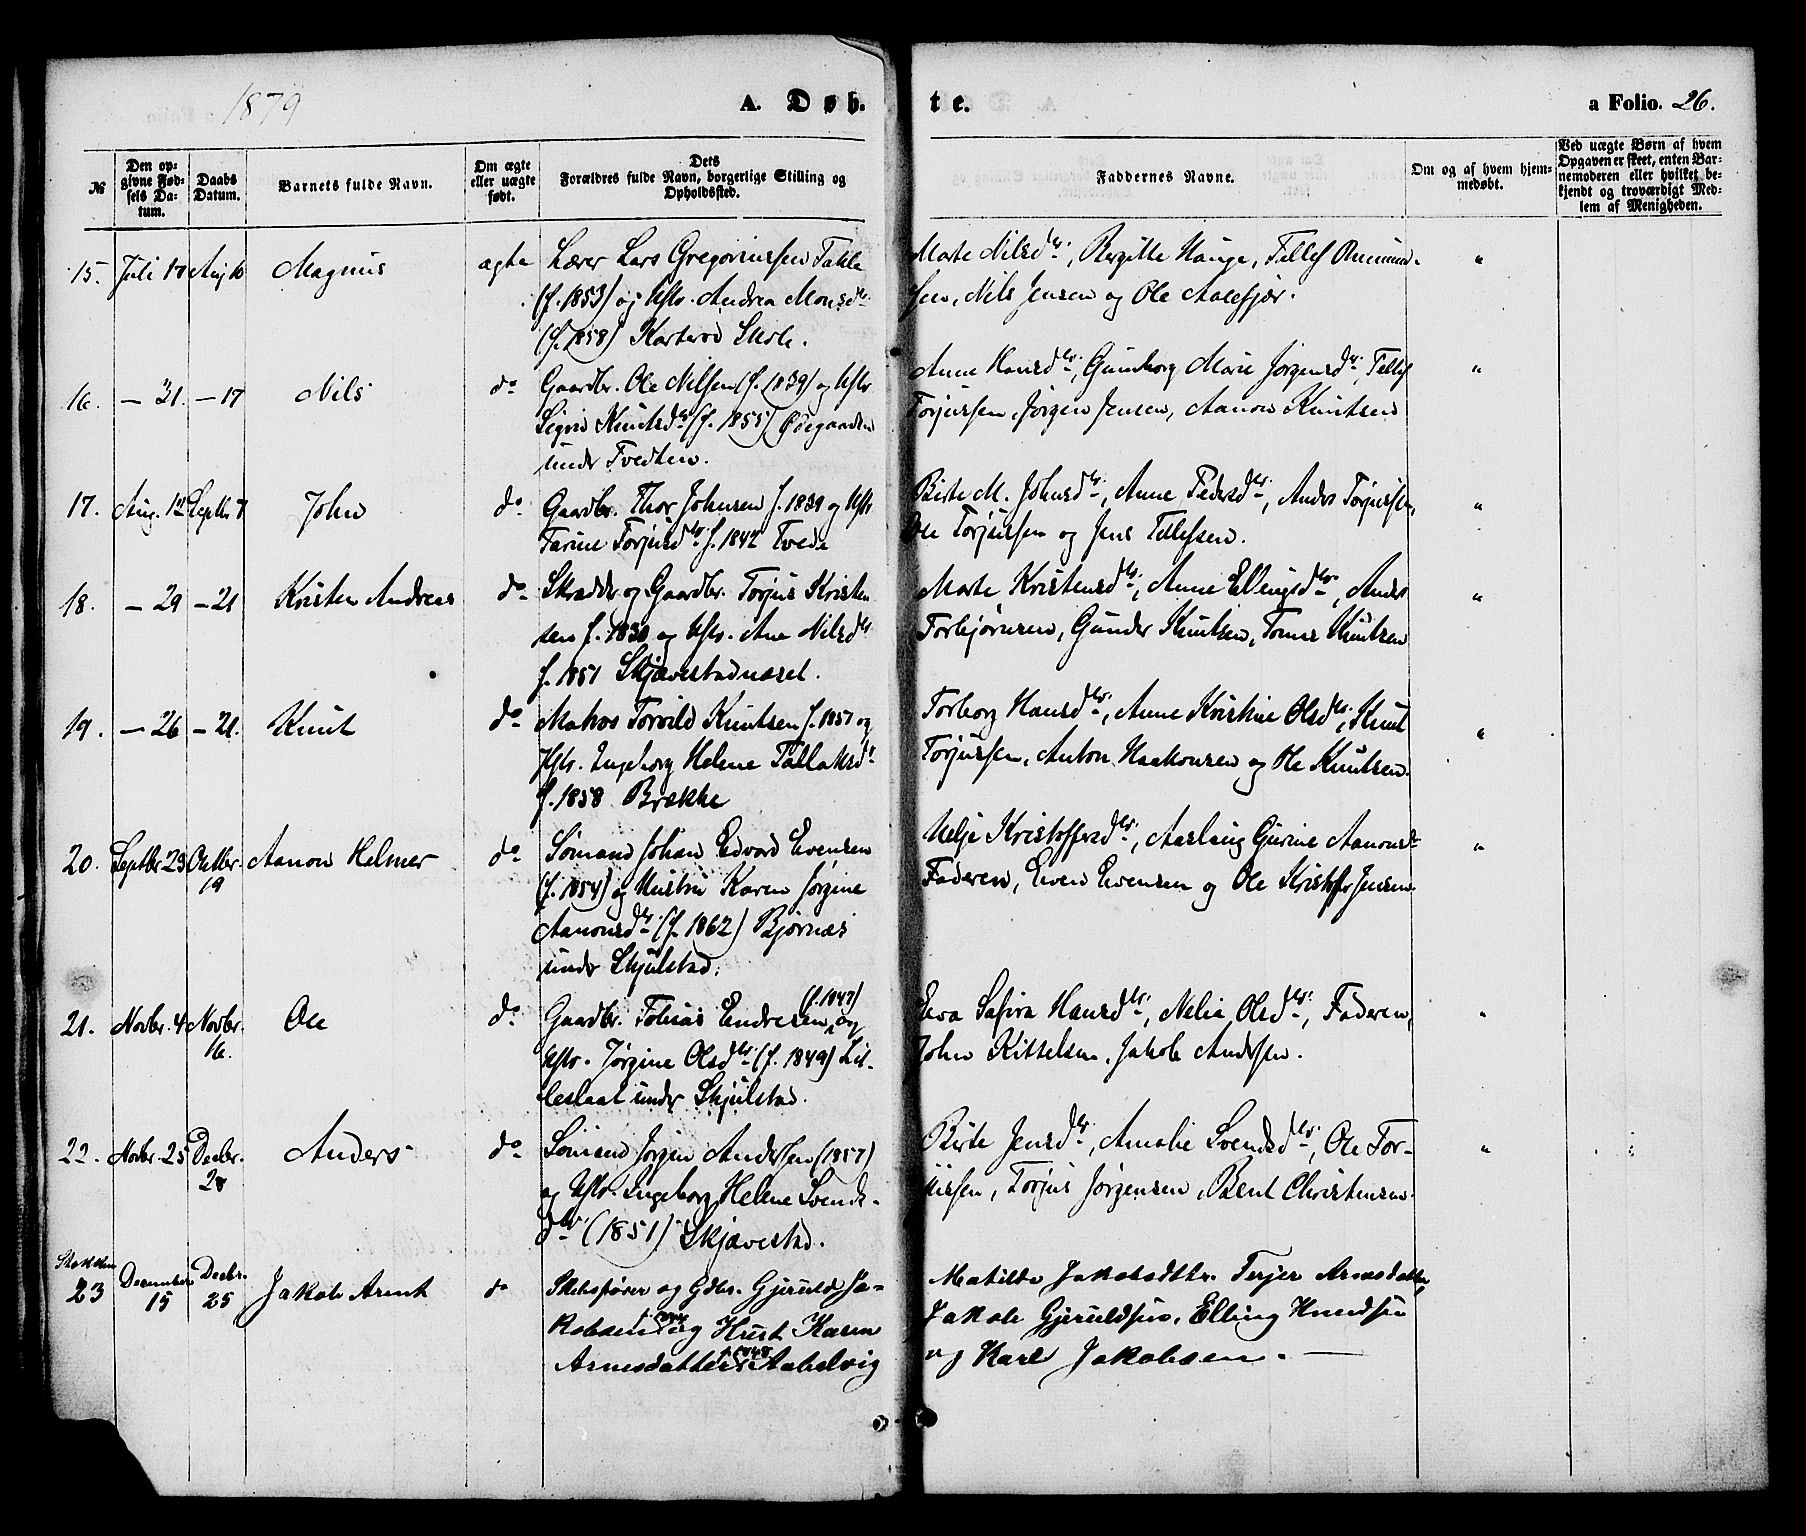 1879
A. Døb-
te.
a Folio. 26.
№
Den op-
givne Fød-
sels Da-
tum.
Daabs
Datum.
Barnets fulde Navn.
Om ægte
eller uægte
født.
Dets
Forældres fulde Navn, borgerlige Stilling og
Opholdssted.
Faddernes Navne.
Om og af hvem hjem-
medøbt.
Ved uægte Børn af hvem
Opgaven er skeet, enten Bar-
nemoderen eller hvilket be-
kjendt og troværdigt Med-
lem af Menigheden.
15. Juli 17 Aug 10 Magnus ægte Lærer Lars Gregoriussen Takle
(f. 1853) og Hstr. Andrea Monsdtr
(f. 1858) Karterød Skole.
Marte Nilsdtr, Bergitte Hauge, Tellef
sen, Nils Jensen og Ole Aalefjær.
"
16. — 31. — 17 Nils do Gaardbr. Ole Nilsen (f. 1839) og Hstr
Sigrid Knutsdtr (f. 1855) Ødegaarden
under Tvedten.
Anne Hansdtr, Gunborg Marie Jørgensdtr, Tellef
Torjussen, Jørgen Jensen, Aanon Knutsen
"
17. Aug. 12 Septbr 7 John do Gaardbr. Thor Johnsen f. 1839 og Hstr
Tarine Torjusdtr f. 1842 Tvede
Birte M. Johnsdtr, Anne Pedersdtr, Anders Torjussen,
Ole Torjussen og Jens Tellefsen.
"
18. — 29 — 21 Kristen Andreas do Skrædder og Gaardbr. Torjus Kristen
sen f. 1830 og Hstr. Ane Nilsdtr
f. 1851 Skjævestadnæset.
Marte Kristensdtr, Anne Ellingsdtr, Anders
Torbjørnsen, Gunder Knutsen, Tomas Knutsen
"
19. — 26 — 21. Knut do Matros Torvild Knutsen f. 1857 og
Hstr. Ingeborg Helene Tallaksdtr
f. 1858 Brække
Torborg Hansdtr, Anne Kristine Olsdtr, Knut
Torjussen, Anton Haakonsen og Ole Knutsen.
"
20. Septbr. 23 Octbr. 19 Aanon Helmer do Sømand Johan Edvard Evensen
(f. 1854) og Hustru Karen Jørgine
Aanonsdtr (f. 1862) Bjørnæs
under Skjulstad.
Helje Kristoffersdtr, Aaslaug Gurine Aanonsdtr
Faderen, Even Evensen og Ole Kristoffer Jensen.
"
21. Novbr. 4 Novbr. 16. Ole do Gaardbr. Tobias Endresen (f. 1847) og
Hstr. Jørgine Olsdtr (f. 1849) Lil-
leslaat under Skjulstad.
Eva Safira Hansdtr, Nelia Olsdtr, Faderen,
John Kittelsen, Jakob Andersen.
"
22. Novbr. 25 Decbr. 28 Anders do Sømand Jørgen Anderssen (1857)
og Hstr. Ingeborg Helene Svends-
dtr. (1851) Skjævestad.
Birte Jensdtr, Amalie Svendsdtr, Ole Tor-
jussen, Torjus Jørgensen, Bent Christensen.
"
Stokken
23 December 15 Decbr. 25 Jakob Arent do Skibsfører og Gdbr. Gjeruld Ja-
kobsen og Hust Karen
Arnesdatter f. 1848 Aabelvig
Matilde Jakobsdttr. Terjer Arnesdatter,
Jakob Gjeruldsen, Elling Knudsen
og Karl Jakobsen. —